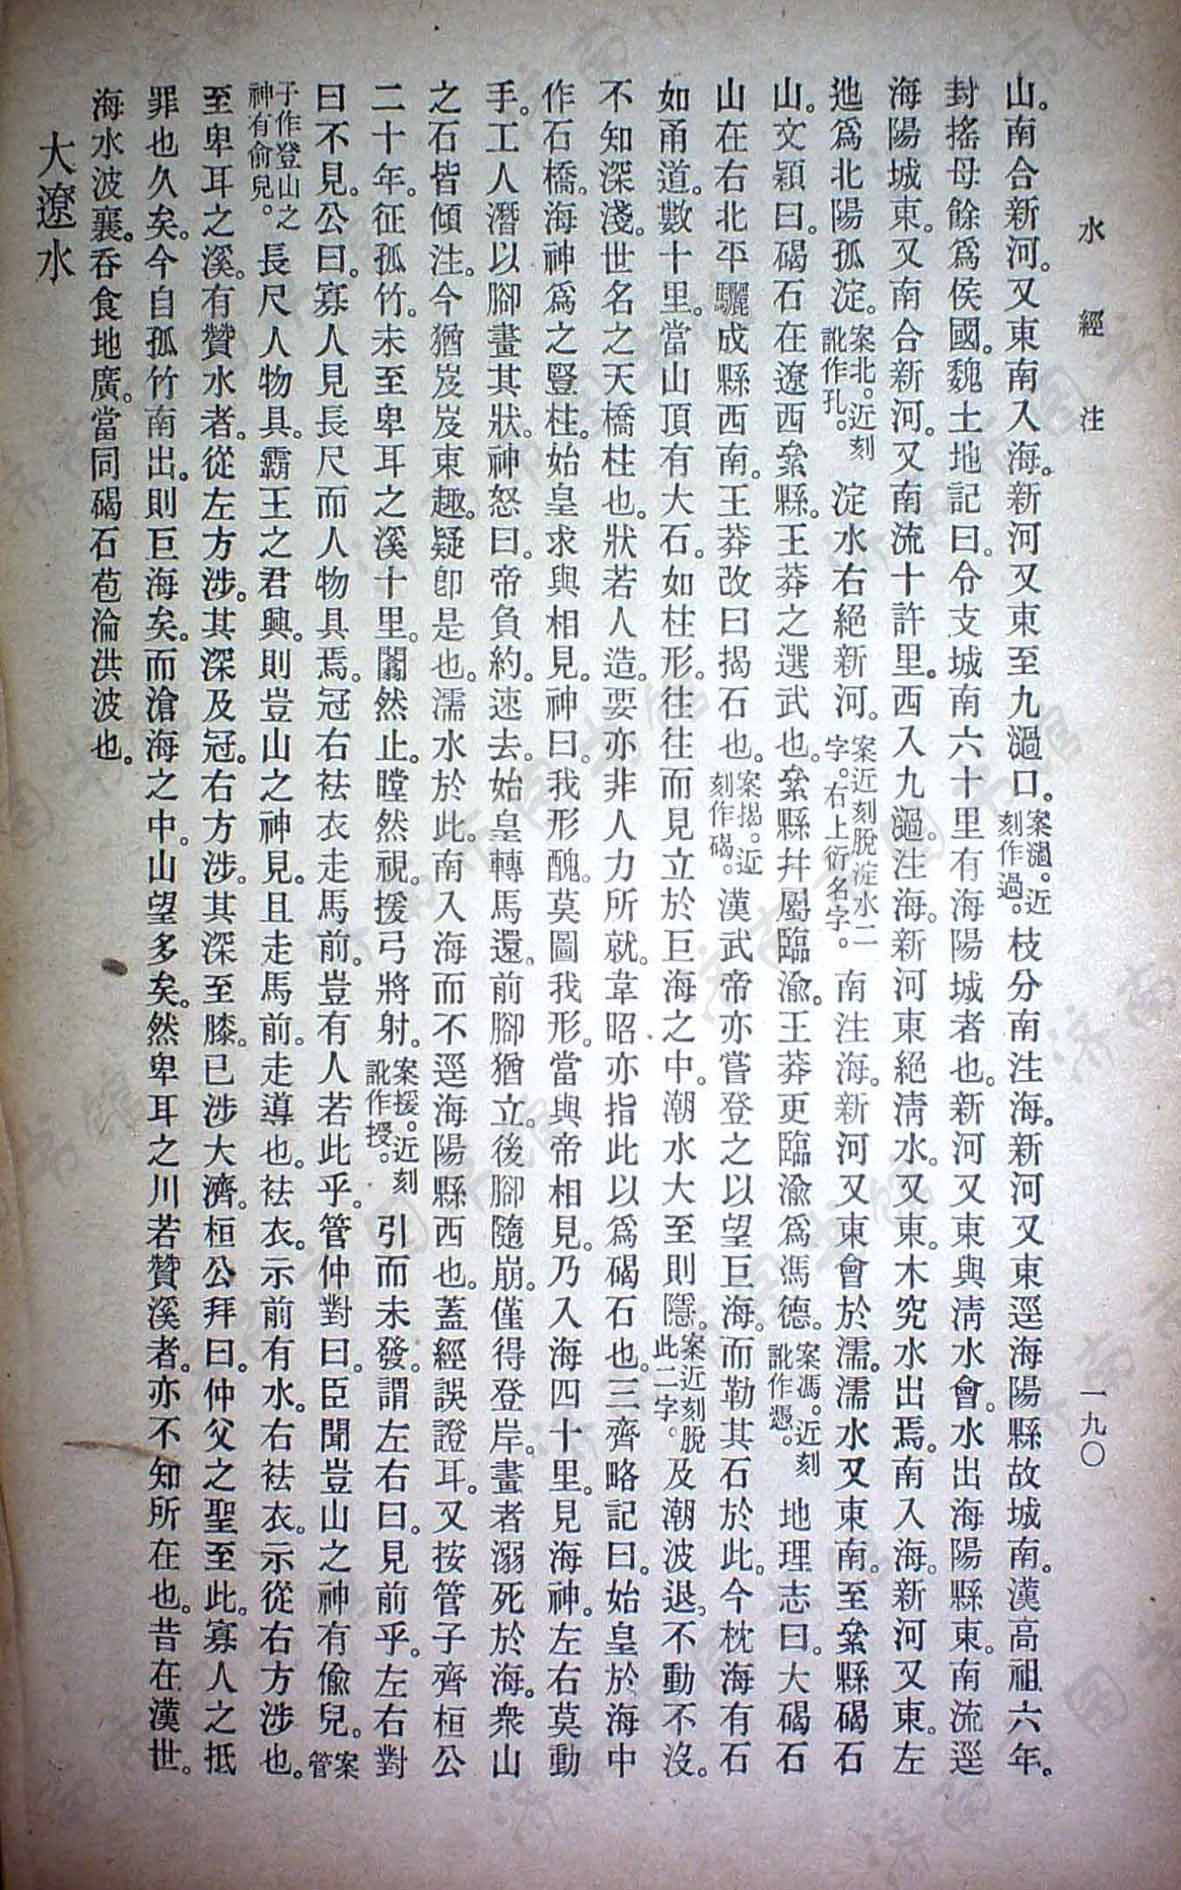 水經注　一九〇
山。南合新河。又東南入海。新河又東至九濄口。案濄。近刻作過。枝分南注海。新河又東逕海陽縣故城南。漢高祖六年。
封搖母餘爲侯國。魏土地記曰。令支城南六十里有海陽城者也。新河又東與淸水會。水出海陽縣東。南流逕
海陽城東。又南合新河。又南流十許里。西入九濄。注海。新河東絕淸水。又東。木究水出焉。南入海。新河又東。左
迆爲北陽孤淀。案北。近刻訛作孔。淀水右絕新河。案近刻脫淀水二字。右上衍名字。南注海。新河又東會於濡。濡水又東南。至絫縣碣石
山。文穎曰。碣石在遼西絫縣。王莽之選武也。絫縣幷屬臨渝。王莽更臨渝爲馮德。案馮。近刻訛作憑。地理志曰。大碣石
山在右北平驪成縣西南。王莽改曰揭石也。案揭。近刻作碣。漢武帝亦嘗登之以望巨海。而勒其石於此。今枕海有石
如甬道。數十里。當山頂有大石。如柱形。往往而見立於巨海之中。潮水大至則隱。案近刻脫此二字。及潮波退。不動不沒。
不知深淺。世名之天橋柱也。狀若人造。要亦非人力所就。韋昭亦指此以爲碣石也。三齊略記曰。始皇於海中
作石橋。海神爲之豎柱。始皇求與相見。神曰。我形醜。莫圖我形。當與帝相見。乃入海四十里。見海神。左右莫動
手。工人潛以腳畫其狀。神怒曰。帝負約。速去。始皇轉馬還。前腳猶立。後腳隨崩。僅得登岸。畫者溺死於海。衆山
之石皆傾注。今猶岌岌東趣。疑卽是也。濡水於此。南入海而不逕海陽縣西也。蓋經誤證耳。又按管子齊桓公
二十年。征孤竹。未至卑耳之溪十里。闟然止。瞠然視。援弓將射。案援。近刻訛作授。引而未發。謂左右曰。見前乎。左右對
曰不見。公曰。寡人見長尺而人物具焉。冠右袪衣走馬前。豈有人若此乎。管仲對曰。臣聞豈山之神有偸兒。案管
子作登山之神有俞兒。長尺人物具。霸王之君興。則豈山之神見。且走馬前。走導也。袪衣。示前有水。右袪衣。示從右方涉也。
至卑耳之溪。有贊水者。從左方涉。其深及冠。右方涉。其深至膝。已涉大濟。桓公拜曰。仲父之聖至此。寡人之抵
罪也久矣。今自孤竹南出。則巨海矣。而滄海之中。山望多矣。然卑耳之川若贊溪者。亦不知所在也。昔在漢世。
海水波襄。吞食地廣。當同碣石苞淪洪波也。
大遼水